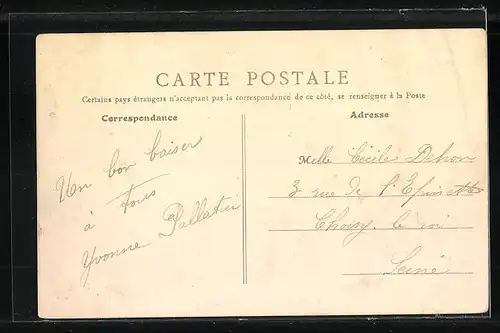 CARTE POSTALE
Certains pays étrangers n'acceptant pas la correspondance de ce côté, se renseigner à la Poste
Correspondance
Un bon baiser
à Tous
Yvonne
Adresse
Melle Cécile Dehon
3 rue de l'Epinette
Choisy le roi
Seine